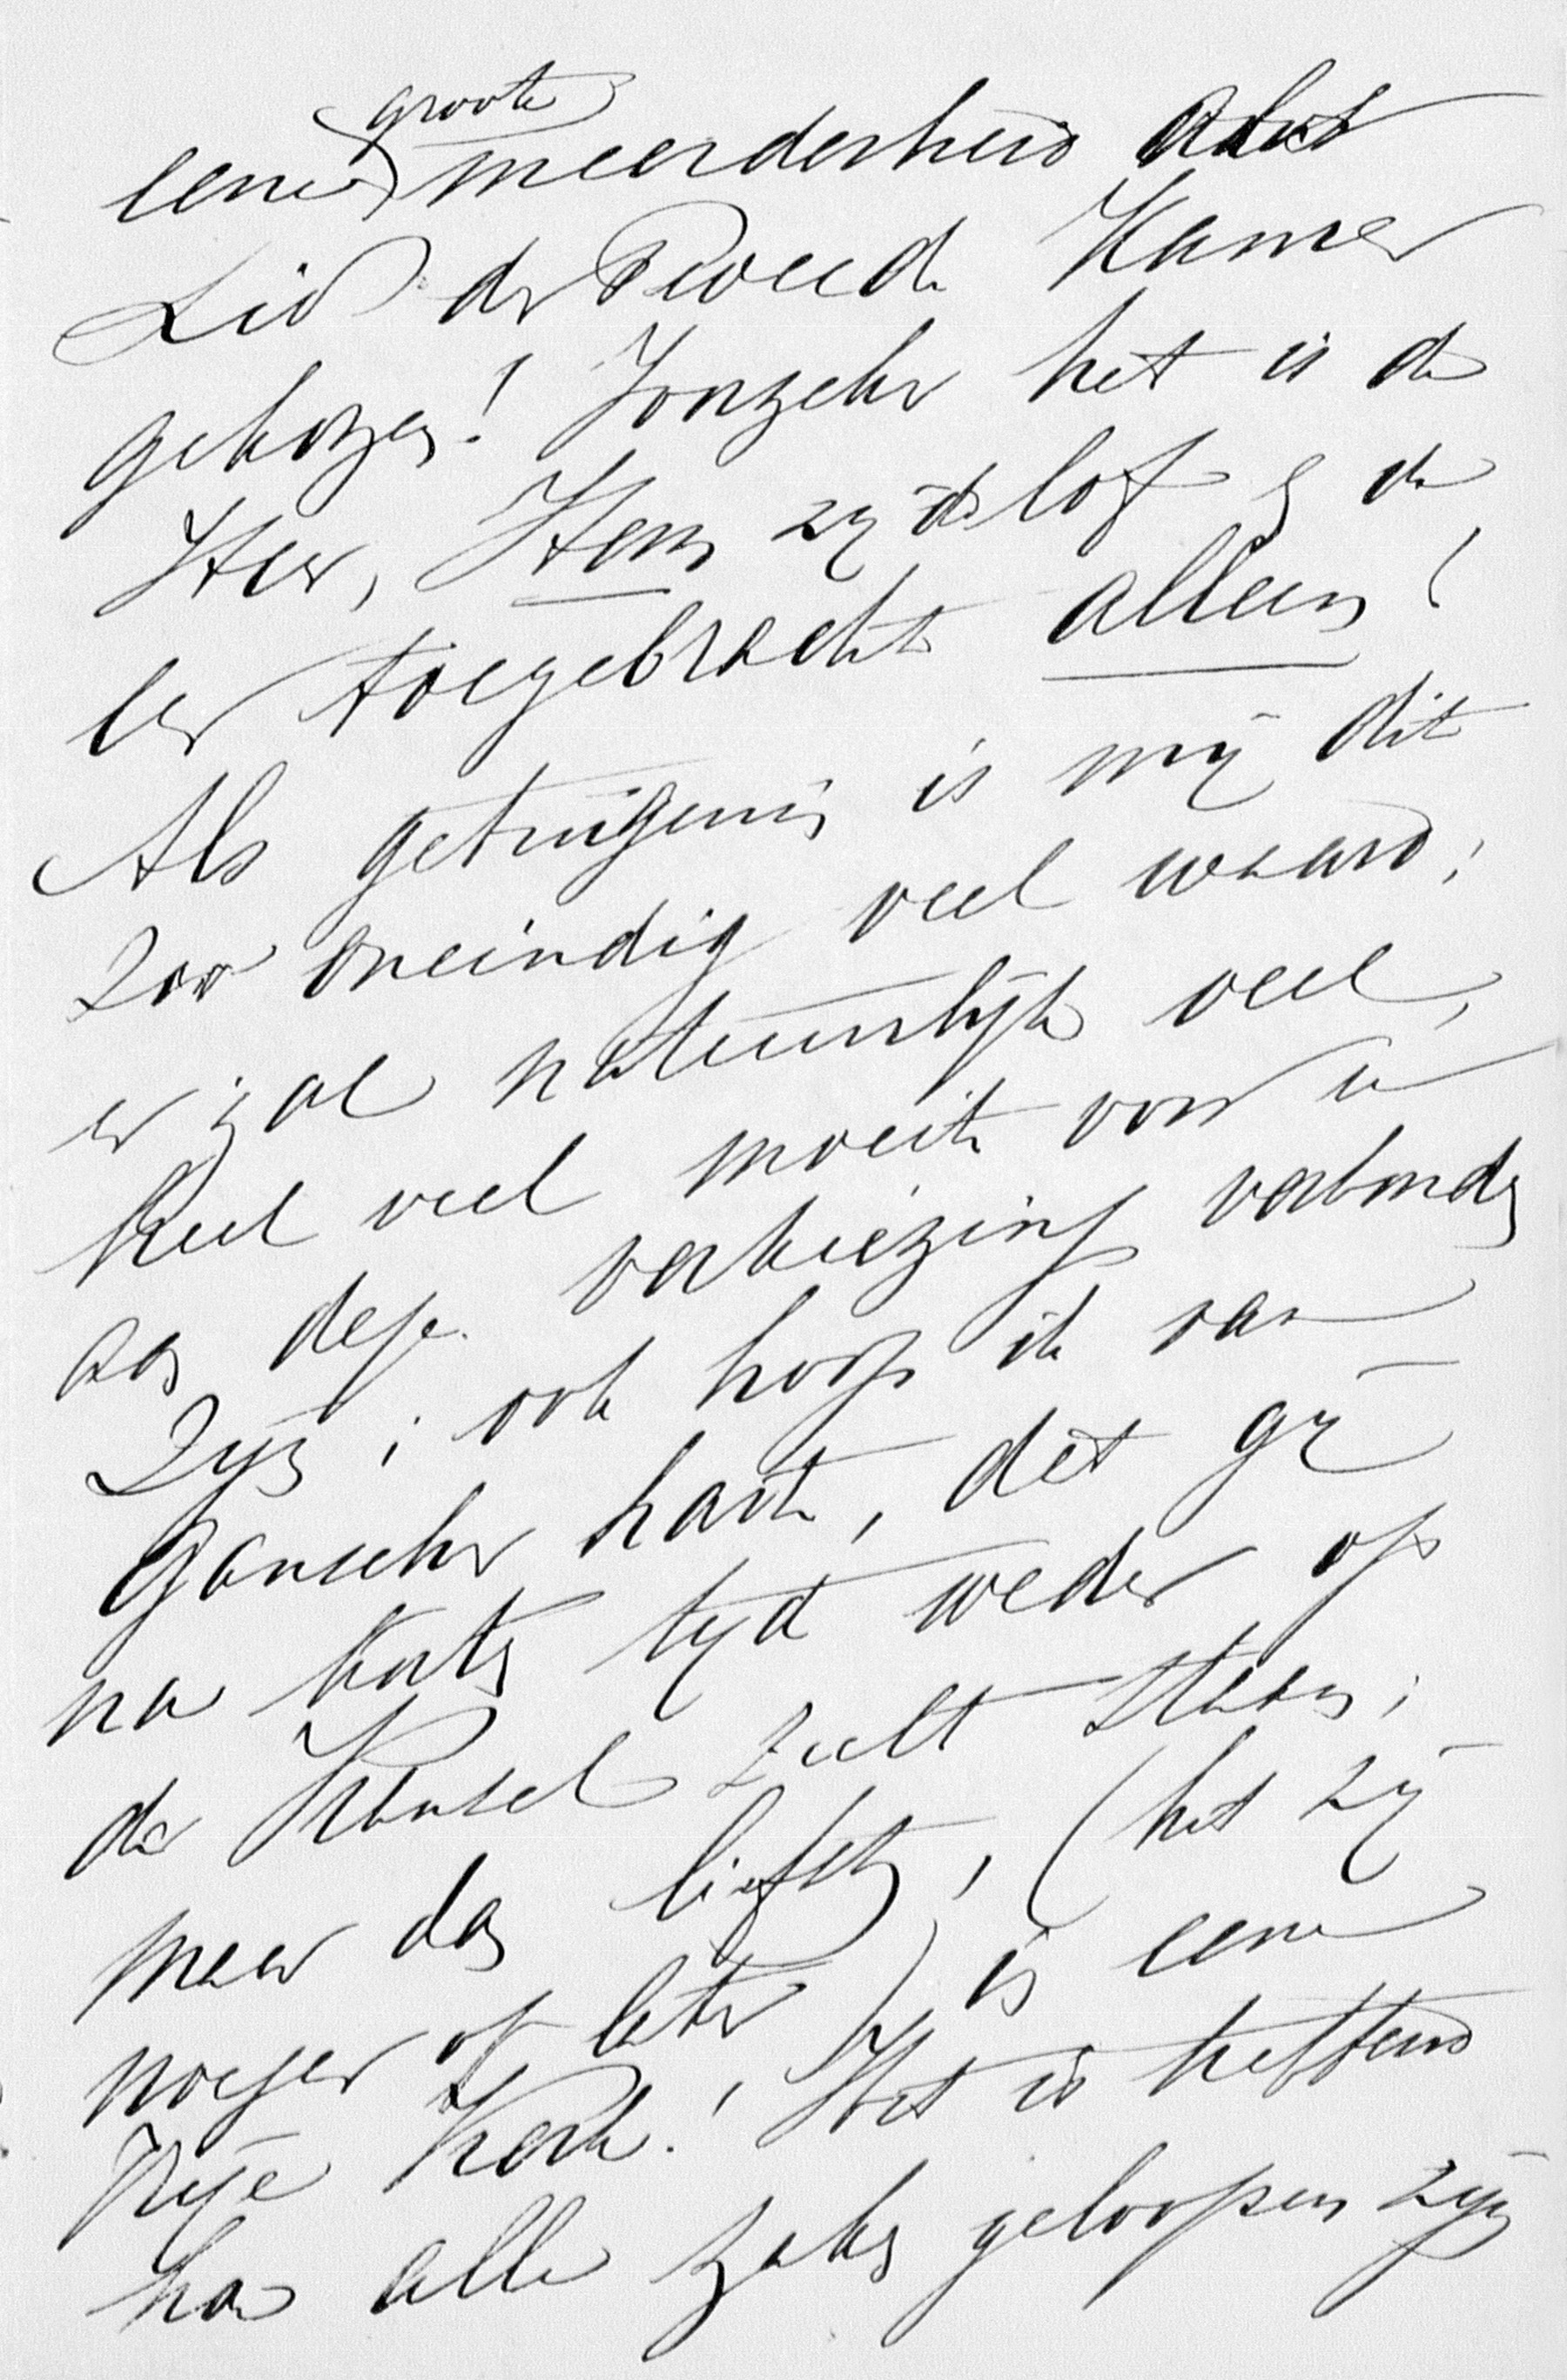 groote
eene meerderheid als
Lid der Tweede Kamer
gekozen! Voorzeker het is de
Heer, Hem zij de lof en de
eer toegebracht alleen!
Als getuigenis is mij dit
zoo oneindig veel waard;
er zal natuurlijk veel,
heel veel moeite voor u
aan deze verkiezing verbonden
zijn; ook hoop ik van
ganscher harte, dat gij
na korten tijd weder op
de Kansel zult staan;
maar dan liefst, (het zij
vroeger of later) in eene
Vrije Kerk! Het is treffend
hoe alle zaken geloopen zijn